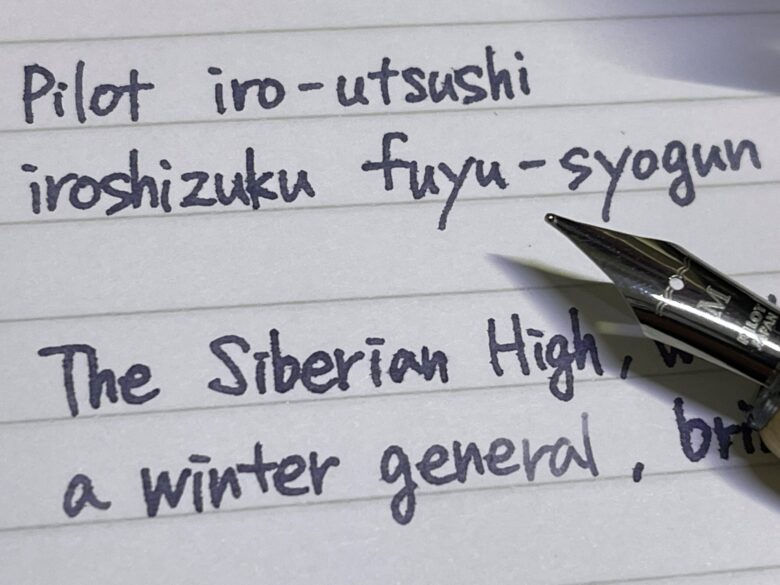 Pilot iro-utsushi
iroshizuku fuyu-syogun
The Siberian High,
a winter general,
M
PILOT
JAPAN